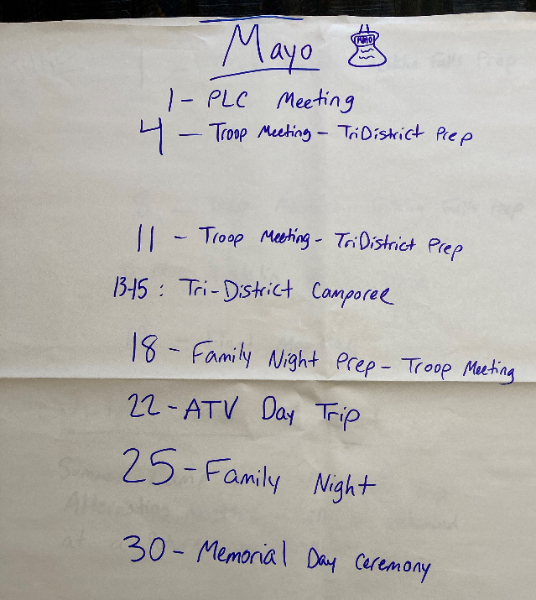 Mayo
MAYO
1 - PLC Meeting
4 - Troop Meeting - TriDistrict Prep
11 - Troop Meeting - TriDistrict Prep
13-15 : Tri-District Camporee
18 - Family Night Prep - Troop Meeting
22 - ATV Day Trip
25 - Family Night
30 - Memorial Day Ceremony